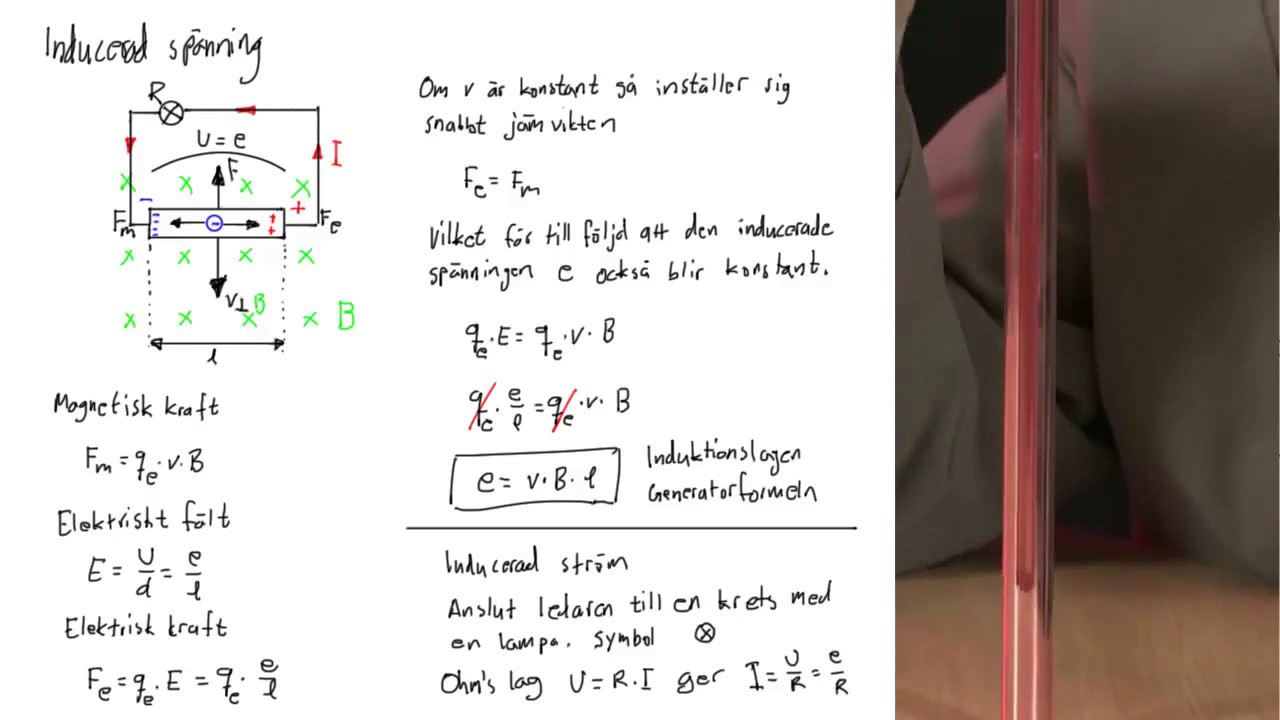 Inducerad spänning
R
U = e
I
F
x x x x
- +
Fm - Fe
x x x x
v⊥ B
x x x x B
l
Magnetisk kraft
Fm = qe · v · B
Elektriskt fält
E = U/d = e/l
Elektrisk kraft
Fe = qe · E = qe · e/l
Om v är konstant så inställer sig
snabbt jämvikten
Fe = Fm
vilket för till följd att den inducerade
spänningen e också blir konstant.
qe · E = qe · v · B
qe · e/l = qe · v · B
e = v · B · l
Induktionslagen
Generatorformeln
Inducerad ström
Anslut ledaren till en krets med
en lampa. Symbol ⊗
Ohm's lag U = R · I ger I = U/R = e/R